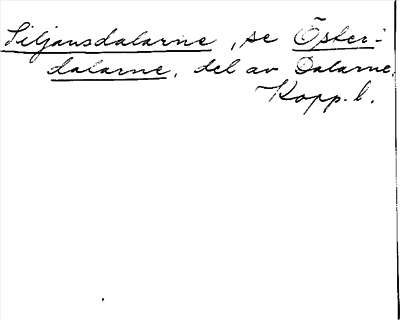 Siljansdalarne, se Öster-
dalarne, del av Dalarne,
Kopp. l.